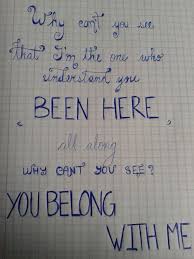 Why can't you see
that I'm the one who
understand you
BEEN HERE
all along
WHY CANT YOU SEE?
YOU BELONG
WITH ME